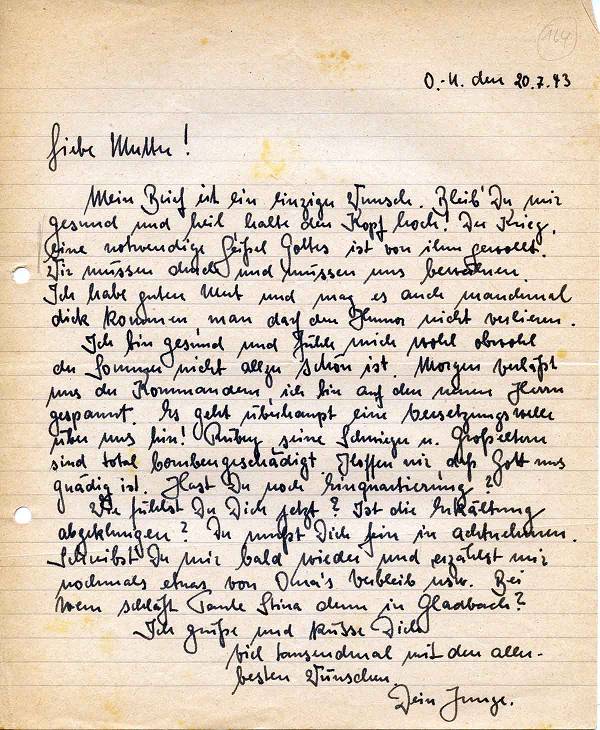 164
O.-U. den 20.7.43
Liebe Mutter!
Mein Brief ist ein einziger Wunsch. Bleib' Du mir
gesund und heil halte den Kopf hoch! Der Krieg,
eine notwendige Geißel Gottes ist von ihm gewollt.
Wir müssen durch und müssen uns bewähren.
Ich habe guten Mut und mag es auch manchmal
dick kommen man darf den Humor nicht verlieren.
Ich bin gesund und fühle mich wohl obwohl
der Sommer nicht allzu schön ist. Morgen verläßt
uns der Kommandeur, ich bin auf den neuen Herrn
gespannt. Es geht überhaupt eine Versetzungswelle
über uns hin! seine Schwieger u. Großeltern
sind total bombengeschädigt. Hoffen wir daß Gott uns
gnädig ist. Hast Du noch Einquartierung?
Wie fühlst Du Dich jetzt? Ist die Erkältung
abgeklungen? Du mußt Dich fein in achtnehmen.
Schreibst Du mir bald wieder und erzählst mir
nochmals etwas von Oma's Verbleib usw. Bei
wem schläft Tante Stina denn in Gladbach?
Ich grüße und küsse Dich
viel tausendmal mit den aller-
besten Wünschen.
Dein Junge.